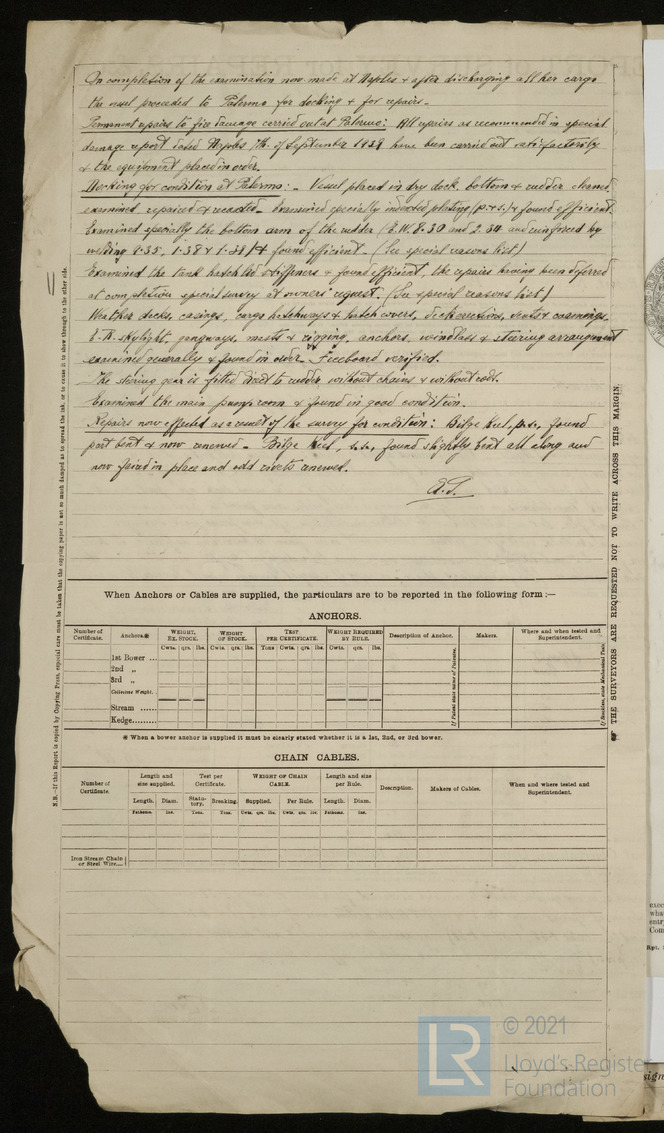 On completion of the examination now made at Naples & after discharging all her cargo
the vessel proceeded to Palermo for docking & for repairs.-
Permanent repairs to fire damage carried out at Palermo: All repairs as recommended in special
damage report dated Naples 7th. of September 1939 have been carried out satisfactorily
& the equipment placed in order.
Docking for condition at Palermo: - Vessel placed in dry dock. bottom & rudder cleaned,
examined repaired & recoated. Examined specially indented plating (p.&s.) & found efficient.
Examined specially the bottom arm of the rudder ( 8.30 and 2.34 and reinforced by
welding 9.35, 1.38 & found efficient - (See special reasons list)
Examined the tank hatch lid stiffeners & found efficient, the repairs having been deferred
at completion special survey at owners' request. (See special reasons list)
Weather decks, casings, cargo hatchways & hatch covers, deck erections, vents & casings,
E.R. skylight, gangways, masts & rigging, anchors, windlass & steering arrangement
examined generally & found in order. Freeboard verified.
The steering gear is fitted direct to rudder without chains & without rods.
Examined the main pump room & found in good condition.
Repairs now effected as a result of the survey for condition: Bilge keel, found
part bent & now renewed - Bilge keel, found slightly bent all along and
now faired in place and odd rivets renewed.
When Anchors or Cables are supplied, the particulars are to be reported in the following form :—
ANCHORS.
Number of Certificate. Anchors.* WEIGHT, EX. STOCK. WEIGHT OF STOCK. TEST PER CERTIFICATE. WEIGHT REQUIRED BY RULE. Description of Anchor. Makers. Where and when tested and Superintendent.
Cwts. qrs. lbs. Cwts. qrs. lbs. Tons Cwts. qrs. lbs. Cwts. qrs. lbs.
1st Bower ...
2nd „
3rd „
Collective Weight.
Stream ......
Kedge........
* When a bower anchor is supplied it must be clearly stated whether it is a 1st, 2nd, or 3rd bower.
CHAIN CABLES.
Number of Certificate. Length and size supplied. Test per Certificate. WEIGHT OF CHAIN CABLE. Length and size per Rule. Description. Makers of Cables. When and where tested and Superintendent.
Length. Diam. Statutory. Breaking. Supplied. Per Rule. Length. Diam.
Fathoms. Ins. Tons. Tons. Cwts. qrs. lbs. Cwts. qrs. lbs. Fathoms. Ins.
Iron Stream Chain or Steel Wire....
N.B.—If this Report is copied by Copying Press, especial care must be taken that the copying paper is not so much damped as to spread the ink, or to cause it to show through to the other side.
THE SURVEYORS ARE REQUESTED NOT TO WRITE ACROSS THIS MARGIN.
LR
© 2021
Lloyd's Register
Foundation